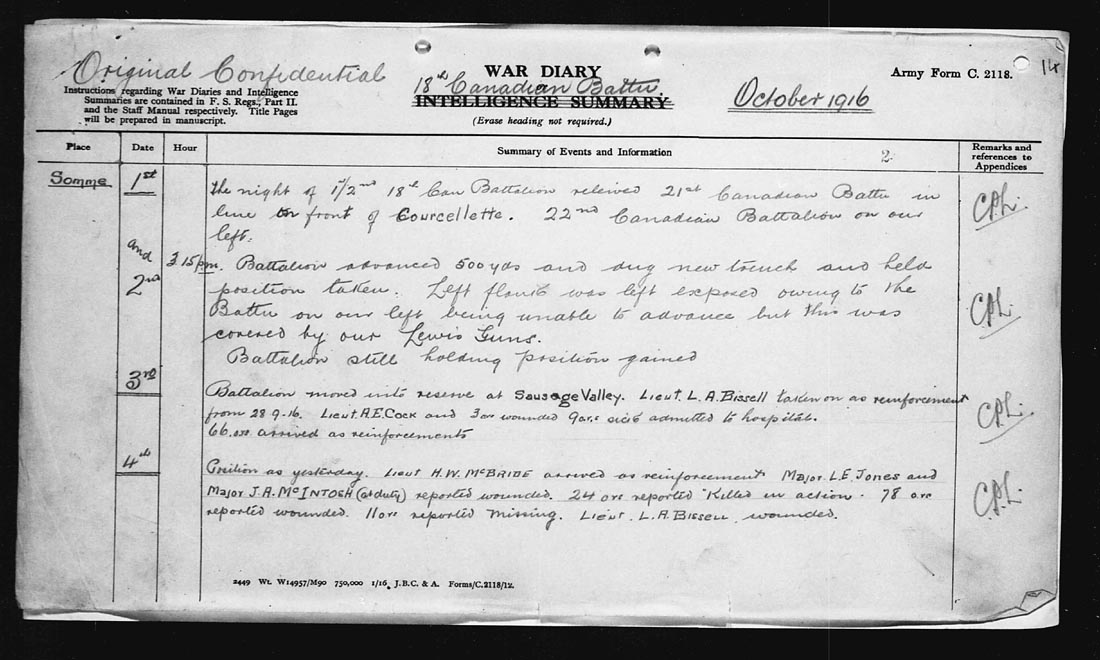 Original Confidential
WAR DIARY
18th Canadian Battn.
INTELLIGENCE SUMMARY
(Erase heading not required.)
October 1916
Army Form C. 2118.
14
Instructions regarding War Diaries and Intelligence
Summaries are contained in F. S. Regs., Part II.
and the Staff Manual respectively. Title Pages
will be prepared in manuscript.
Place
Date
Hour
Summary of Events and Information
2
Remarks and
references to
Appendices
Somme
1st
The night of 1st/2nd 18th Can Battalion relieved 21st Canadian Battn in
line in front of Courcellette. 22nd Canadian Battalion on our
left.
C.P.L.
and
2nd
3 15 pm. Battalion advanced 500 yds and dug new trench and held
position taken. Left flank was left exposed owing to the
Battn on our left being unable to advance but this was
covered by our Lewis Guns.
Battalion still holding position gained
C.P.L.
3rd
Battalion moved into reserve at Sausage Valley. Lieut. L. A. Bissell taken on as reinforcement
from 28-9-16. Lieut A.E. Cock and 3 ors wounded 9 ors sick admitted to hospital.
66 ors arrived as reinforcements
C.P.L.
4th
Position as yesterday. Lieut H.W. McBride arrived as reinforcement Major L.E. Jones and
Major J.A. McIntosh (at duty) reported wounded. 24 ors reported Killed in action. 78 ors
reported wounded. 11 ors reported missing. Lieut. L.A. Bissell wounded.
C.P.L.
2449 Wt. W14957/M90 750,000 1/16 J.B.C. & A. Forms/C.2118/12.